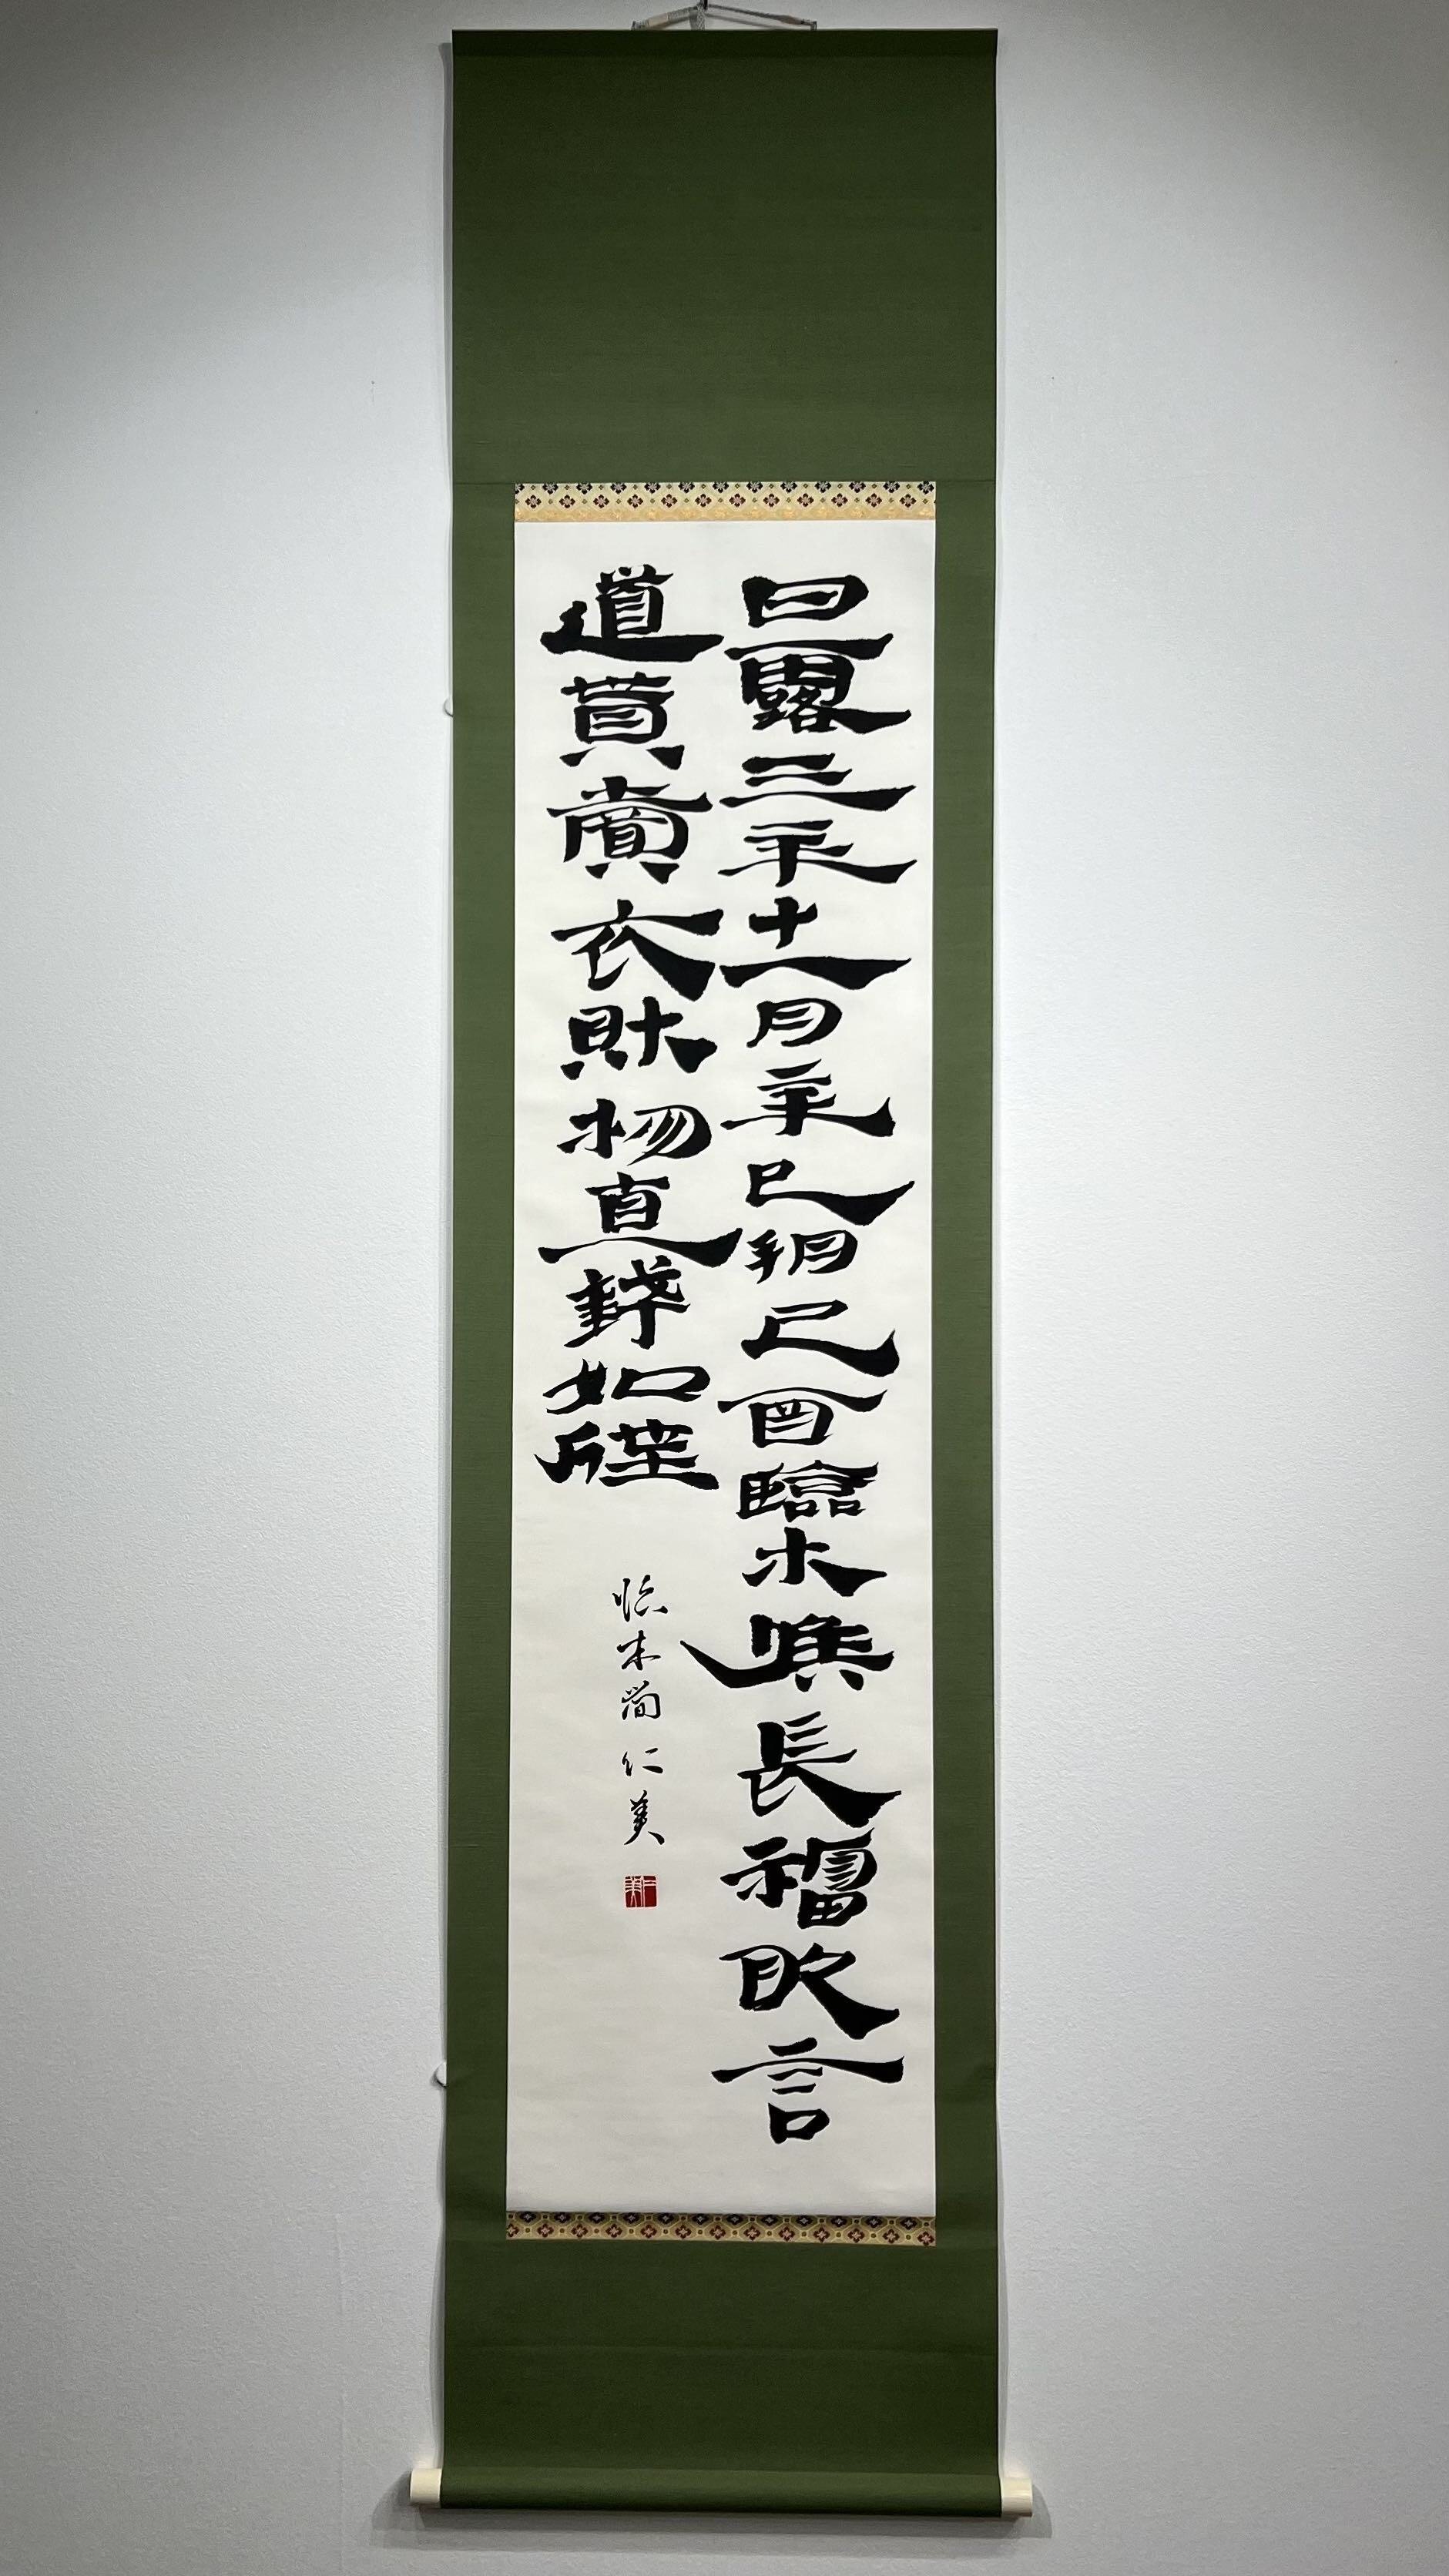 甘露三年十一月辛巳朔己酉臨木候長福敢言
道貰賣衣財物直錢如牒
臨木簡 仁美
仁美